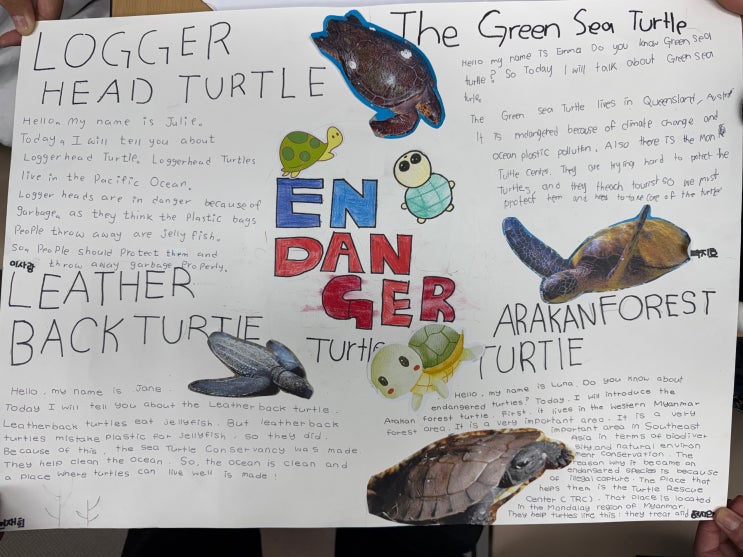 LOGGER
HEAD TURTLE
Hello. My name is Julie.
Today, I will tell you about
Loggerhead Turtle. Loggerhead Turtles
live in the Pacific Ocean.
Logger heads are in danger because of
garbage, as they think the Plastic bags
People throw away are Jelly fish.
So, People should Protect them and
throw away garbage Properly.
이사랑
The Green Sea Turtle
Hello my name is Emma Do you know Green Sea
turtle? So Today I will talk about Green Sea
turtle.
The Green sea Turtle lives in Queensland,
It is endangered because of climate change and
ocean plastic pollution. Also there is the Mon
Tultle Center. They are trying hard to protect the
Turtles, and they theach tourist so we must
protect them and to take care of the turtle
EN
DAN
GER
Turtle
LEATHER
BACK TURTLE
Hello, my name is Jane.
Today I will tell you about the Leather back turtle.
Leatherback turtles eat jellyfish. But leatherback
turtles mistake Plastic for Jellyfish, so they did.
Because of this, the Sea Turtle Conservancy was made.
They help clean the ocean. So, the ocean is clean and
a place where turtles can live well is made!
ARAKAN FOREST
TURTLE
Hello, my name is Luna. Do you know about
endangered turtles? Today, I will introduce the
Arakan forest turtle. First, it lives in the western Myanmar
forest area. It is a very important area. It is a very
important area in Southeast
Asia in terms of biodiver
sity and natural environ
ment conservation. The
reason why it became an
endangered species is because
of illegal capture. The Place that
helps then is the Turtle Rescue
Center (TRC). That place is located
in the Mandalay region of Myanmar.
They help turtles like this: they treat and